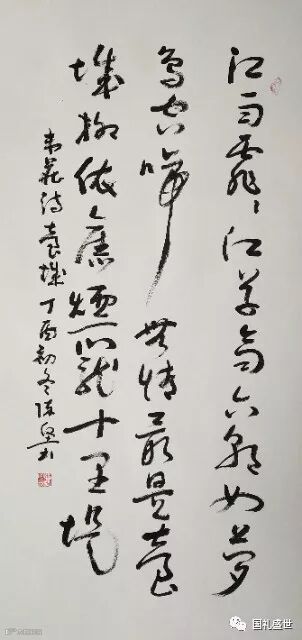 江雨霏々江草齊六朝如夢
鳥空啼無情最是臺
城柳依舊煙籠十里堤
韋莊詩臺城丁酉初冬
国礼盛世